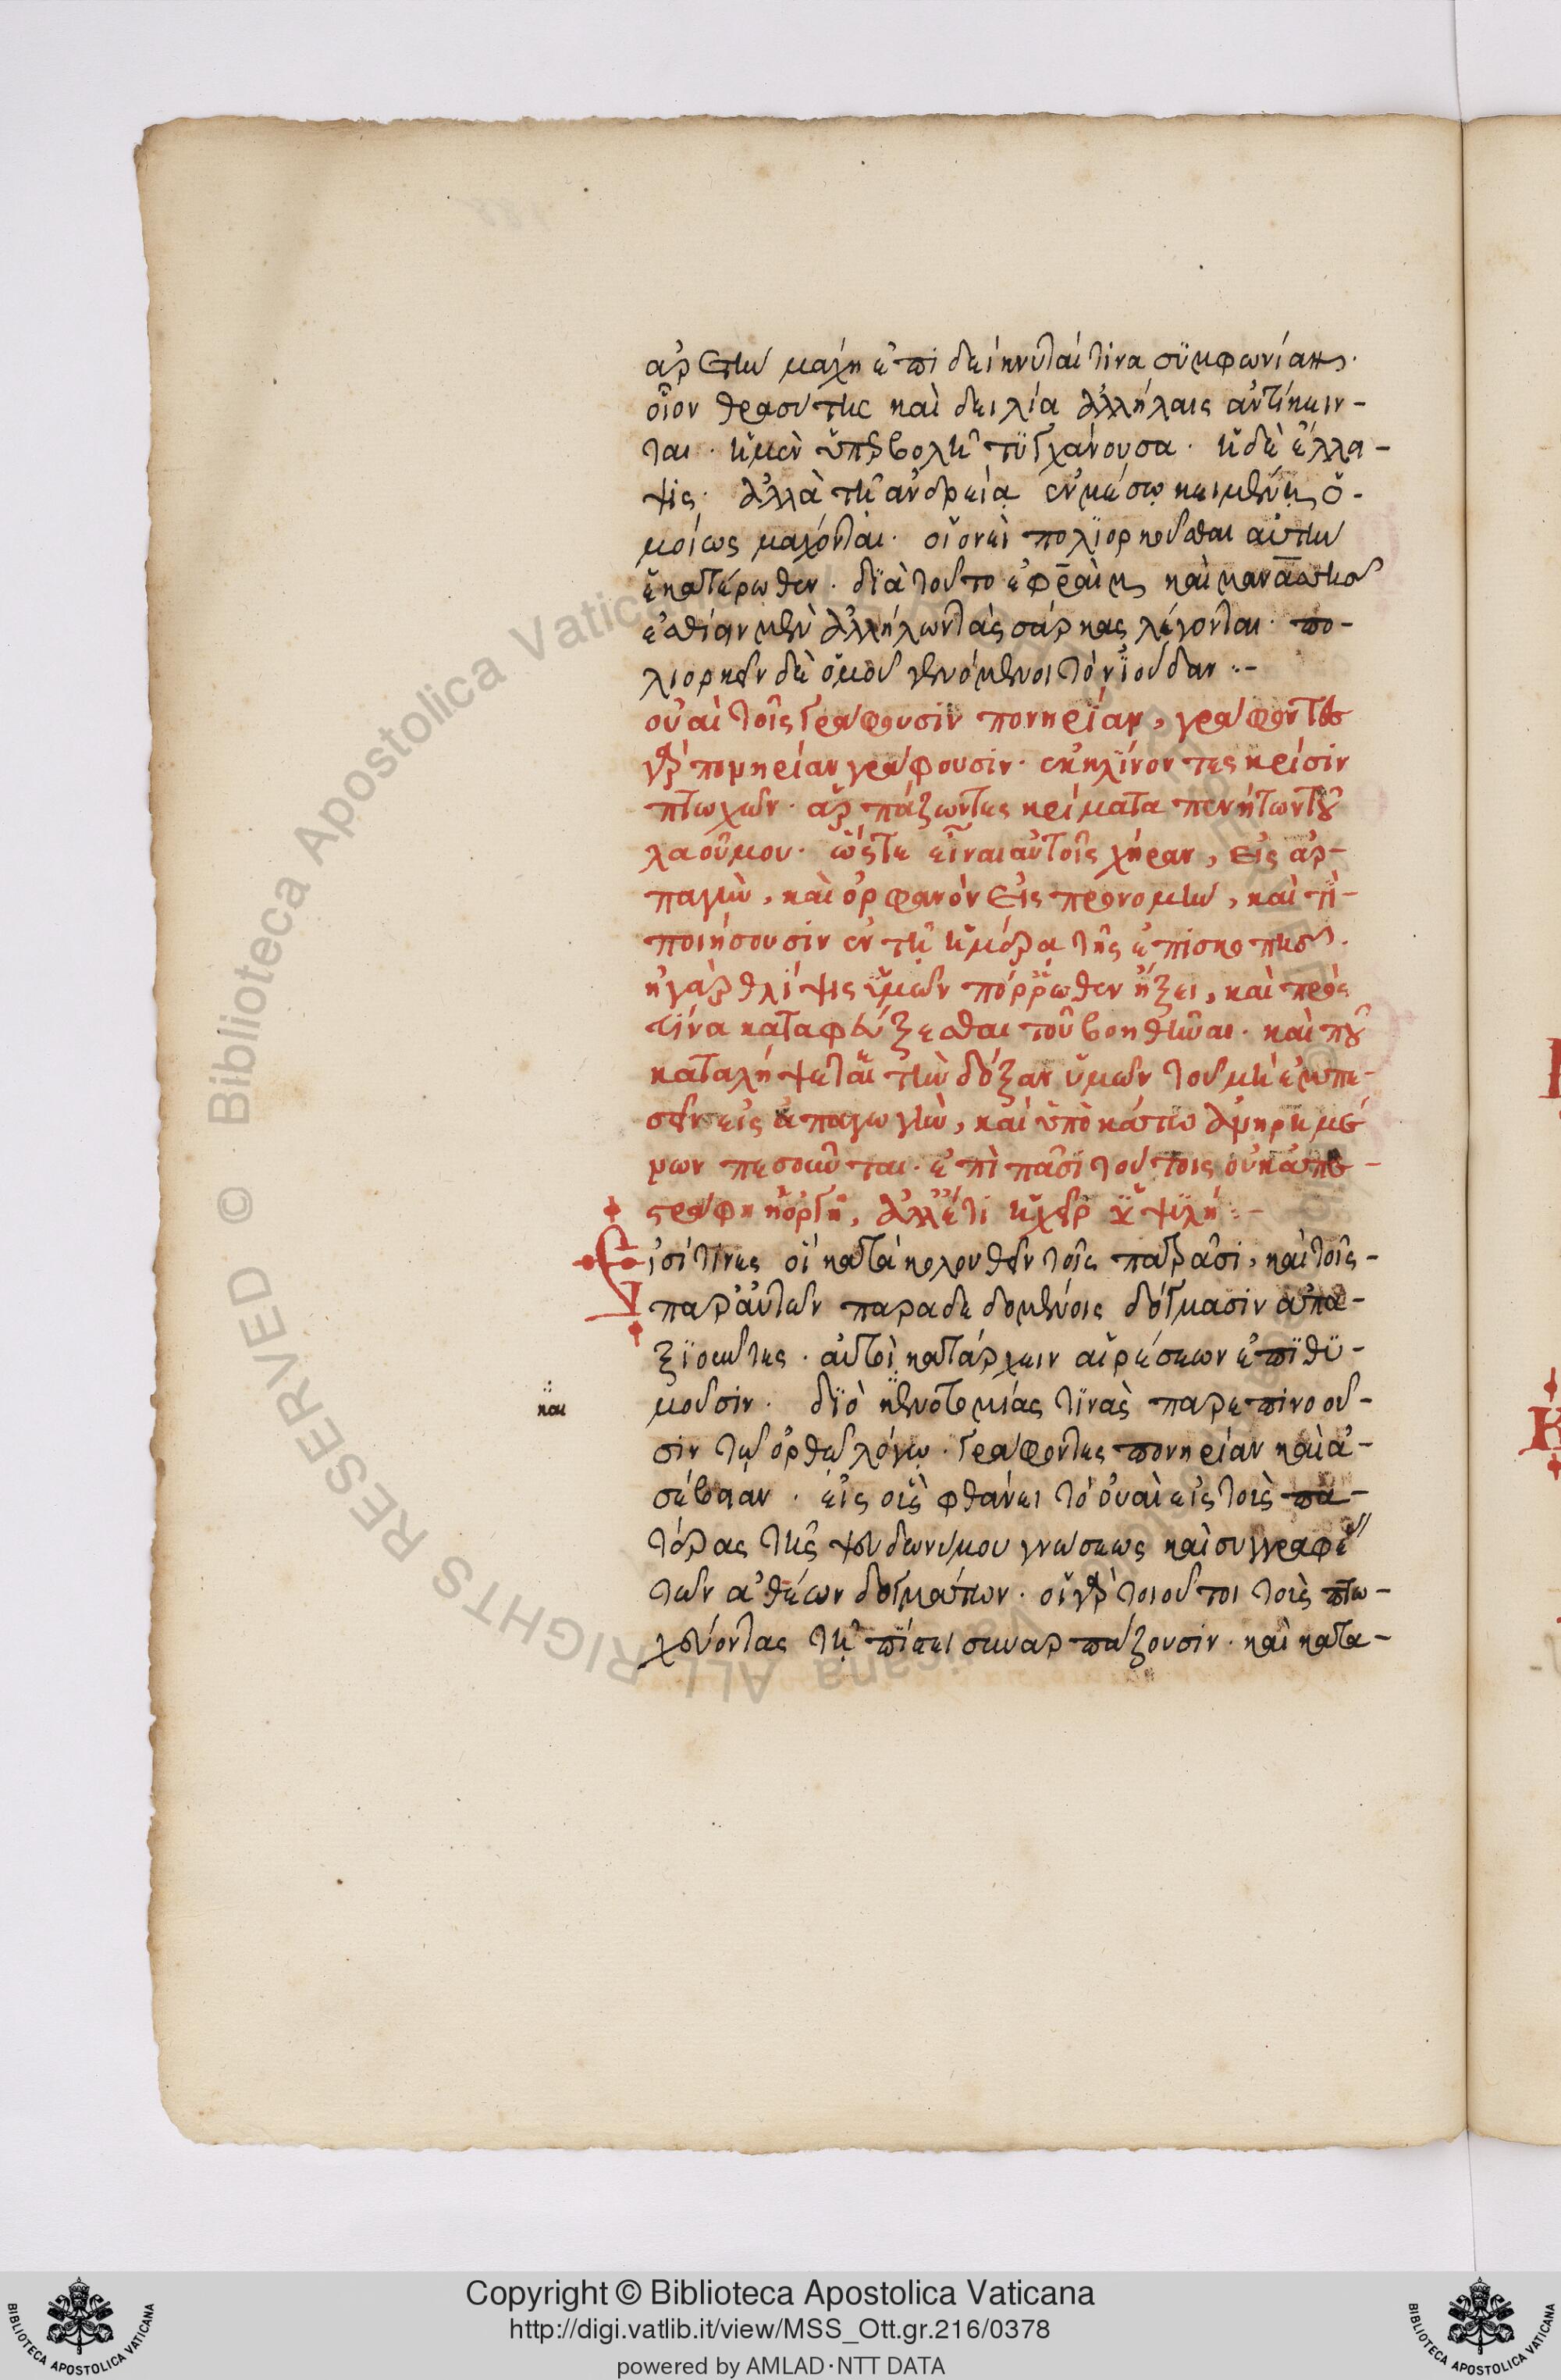 ἀρετὴν μάχη ἐπιδείκνυταί τινα συμφωνίαν·
οἷον θρασύτης καὶ δειλία ἀλλήλαις ἀντίκειν-
ται· ἡ μὲν ὑπερβολὴ τϋγχάνουσα· ἡ δὲ ἔλλη-
ψις· ἀλλὰ τῇ ἀνδρείᾳ ἐν μέσῳ κειμένῃ ὁ-
μοίως μάχονται· οἱονεὶ πολϊορκοῦσθαι αὐτὴν
ἑκατέρωθεν· δϊὰ τοῦτο ἐφραὶμ καὶ μανασσῆς
ἐσθίειν μὲν ἀλλήλων τὰς σάρκας λέγονται· πο-
λιορκεῖν δὲ ὁμοῦ γενόμενοι τὸν ϊούδαν :-
οὐαὶ τοῖς γράφουσιν πονηρίαν, γράφοντες
γὰρ πονηρίαν γράφουσιν· ἐκκλίνοντες κρίσιν
πτωχῶν· ἁρπάζωντες κρίματα πενήτων τοῦ
λαοῦ μου· ὥστε εἶναι αὐτοῖς χήραν, εἰς ἁρ-
παγὴν, καὶ ὀρφανὸν εἰς προνομὴν, καὶ τί
ποιήσουσιν ἐν τῇ ἡμέρᾳ τῆς ἐπισκοπῆς·
ἡ γὰρ θλίψις ὑμῶν πόρρωθεν ἥξει, καὶ πρὸς
τίνα καταφεύξεσθαι τοῦ βοηθῆναι· καὶ ποῦ
καταλήψεται τὴν δόξαν ὑμῶν τοῦ μὴ ἐμπε-
σεῖν εἰς ἀπαγωγὴν, καὶ ὑποκάτω ἀνῃρημέ
νων πεσοῦνται· ἐπὶ πᾶσι τούτοις οὐκ ἀπε-
στράφη ἡ ὀργὴ, ἀλλ' ἔτι ἡ χεὶρ ἡ ὑψϊλή :-
Εἰσί τινες οἳ κατακολουθεῖν τοῖς πατράσι, καὶ τοῖς
παρ' αὐτῶν παραδεδομένοις δόγμασιν ἀπα-
ξϊοῦντες· αὐτοὶ κατάρχειν αἱρέσεων ἐπϊθϋ-
μοῦσιν· δϊὸ κενοτομίας τϊνὰς παρεπινοοῦ-
και
σιν τῷ ὀρθῷ λόγῳ· γράφοντες πονηρίαν καὶ ἀ-
σέβειαν· εἰς οὓς φθάνει τὸ οὐαὶ εἰς τοὺς πα-
τέρας τῆς ψευδωνύμου γνώσεως καὶ συγγραφεῖς
τῶν ἀθέων δογμάτων· οἱ γὰρ τοιοῦτοι τοὺς πτω-
χεύοντας τῇ πίστει συναρπάζουσιν· καὶ κατα-
Copyright © Biblioteca Apostolica Vaticana
http://digi.vatlib.it/view/MSS_Ott.gr.216/0378
powered by AMLAD·NTT DATA
BIBLIOTECA APOSTOLICA VATICANA
BIBLIOTECA APOSTOLICA VATICANA